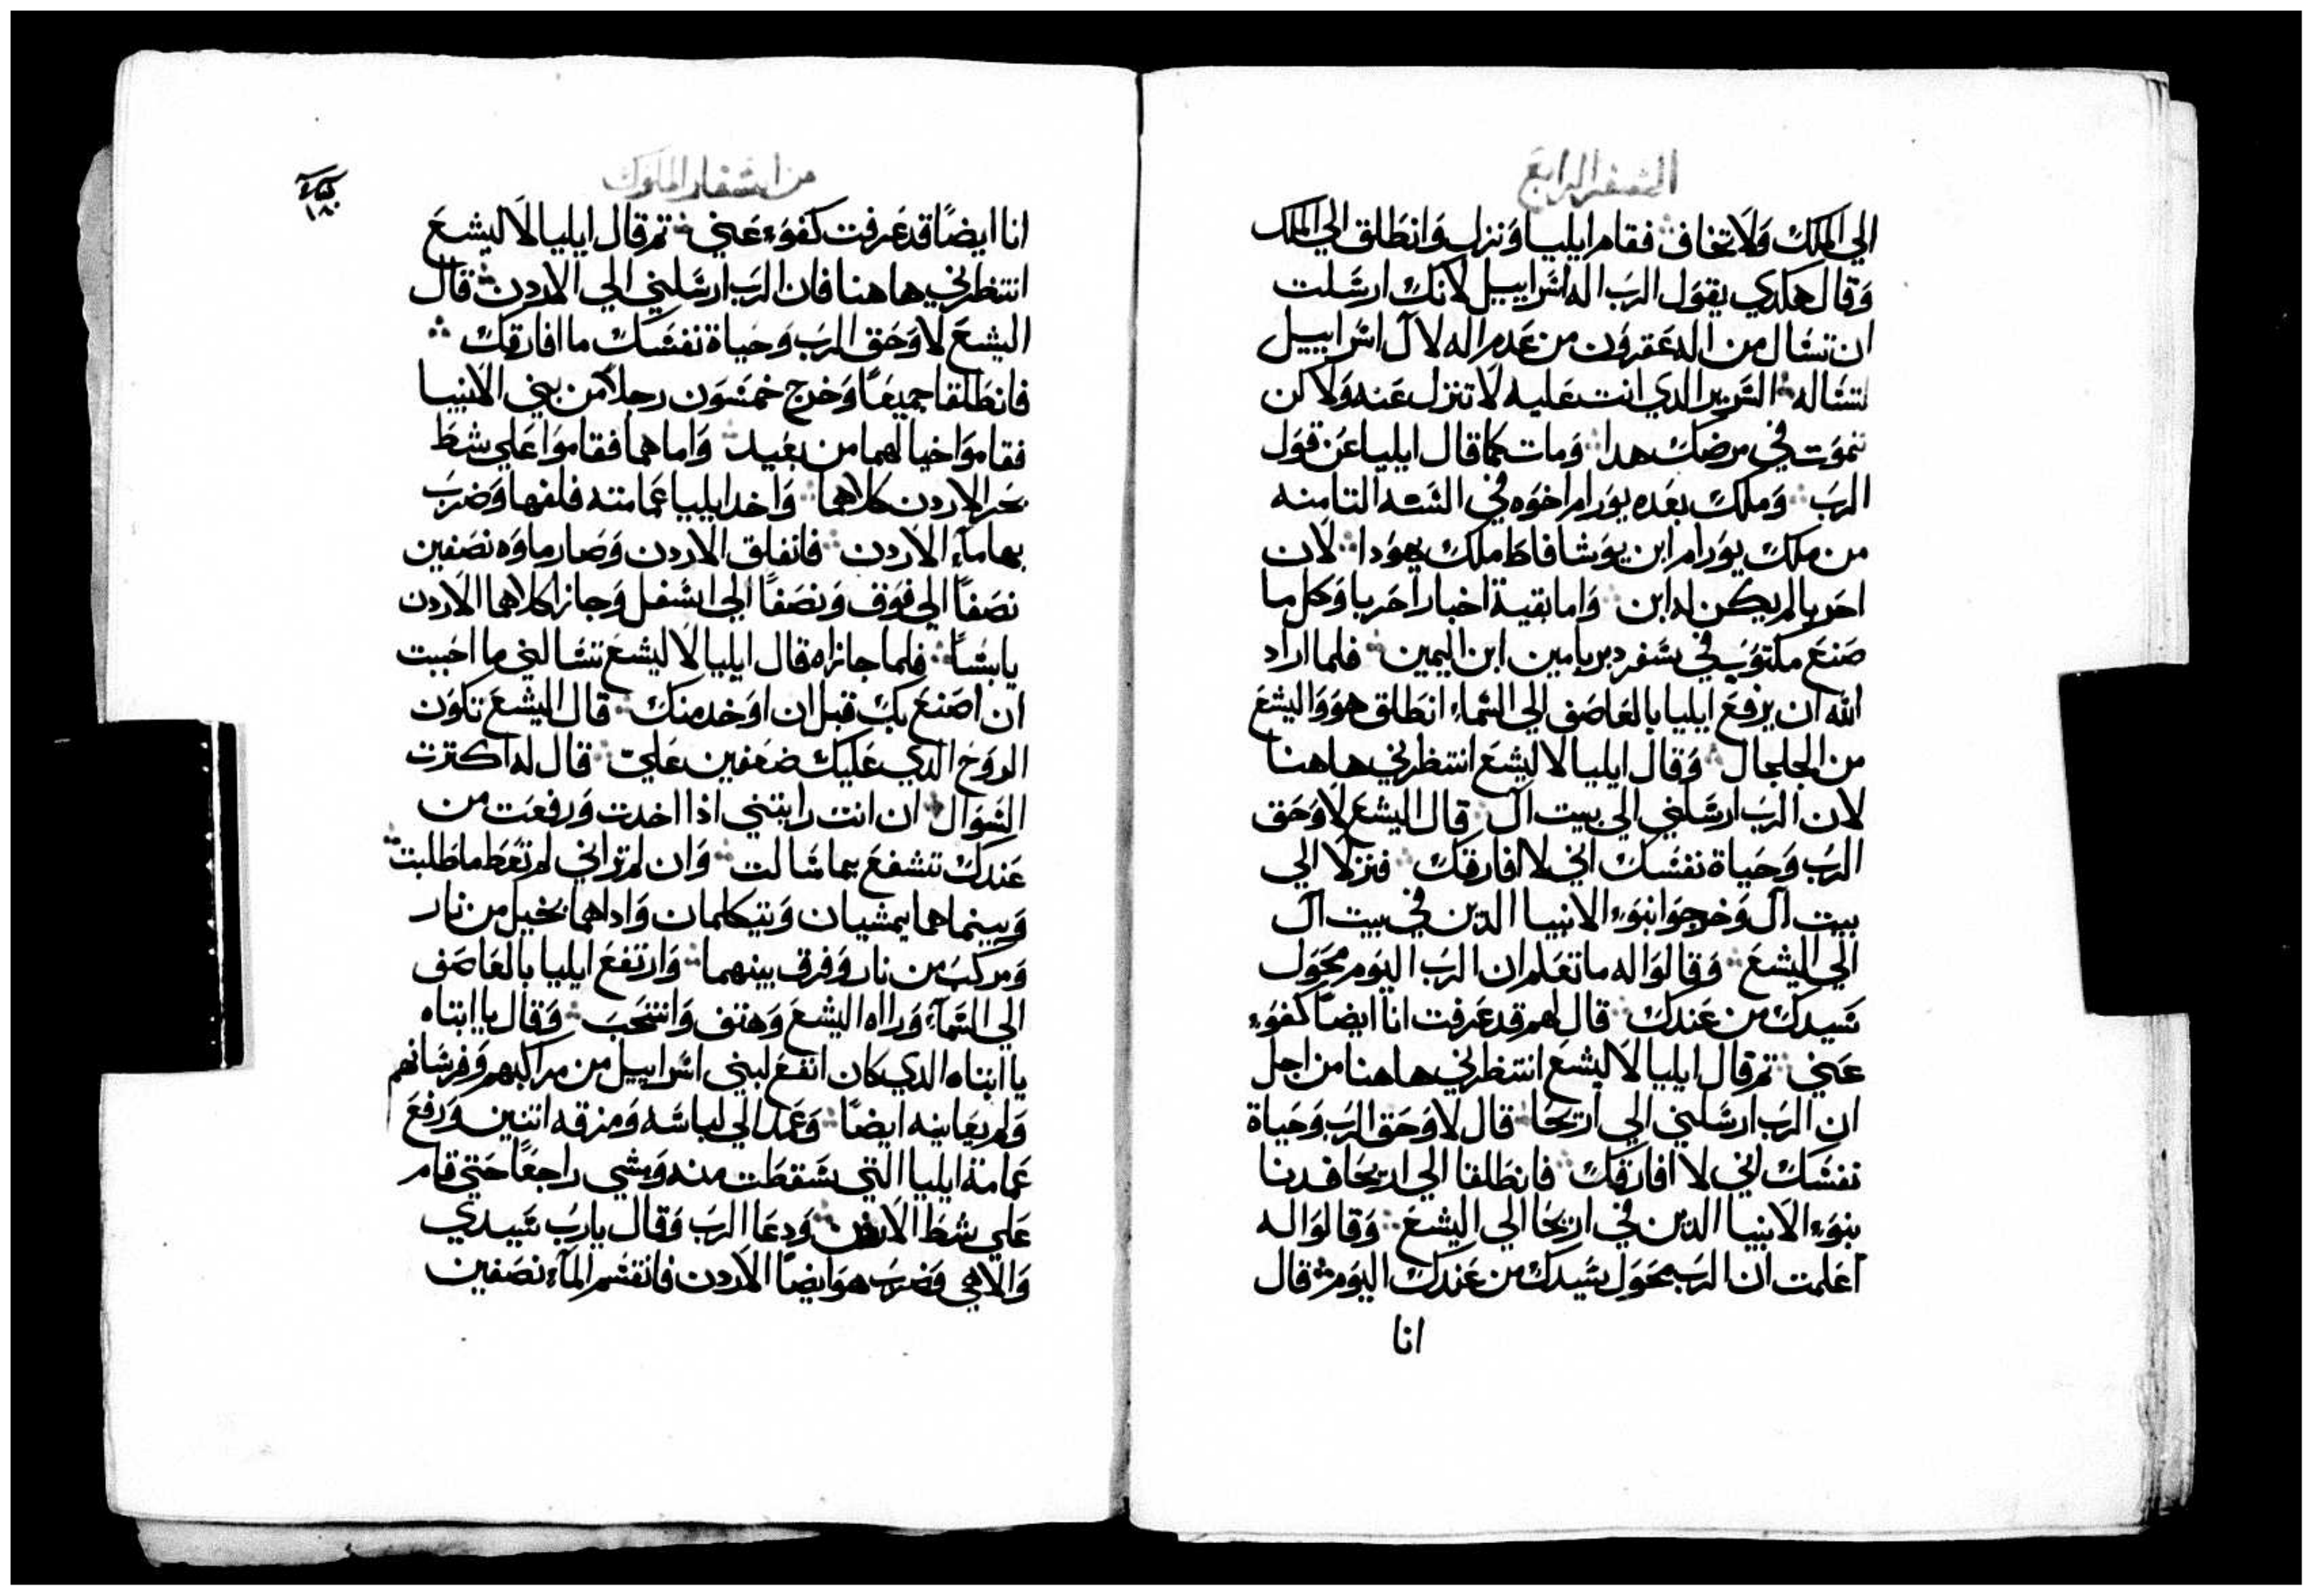 السفر الرابع
الي الملك وَلا تخاف فقام ايليا وَنزل وَانطلق الي الملك
وَقال هكدي يقوَل الرَب اله اسَراييل لانك ارسَلت
ان تسَال من اله عَقرون من عَدم اله لال اسَراييل
لتسَاله السَرير الدي انت عَليه لا تنزل عَنه وَلاكن
تموَت في مرضك هدا وَمات كما قال ايليا عَن قوَل
الرَب وَملك بعَده يوَرام اخوَه في السَنه التامنه
من ملك يوَرام ابن يوَشافاط ملك يهوَدا لان
احَزيا لم يكن له ابن وَاما بقية اخبار احَزيا وَكل ما
صَنعَ مكتوَب في سَفر دبريامين ابن اليمين فلما اراد
الله ان يرفعَ ايليا بالعَاصَف الي السَماء انطلق هوَ وَاليشعَ
من الجلجال وَقال ايليا لاليشعَ انتظرني هاهنا
لان الرَب ارسَلني الي بيت ال قال اليشعَ لا وَحَق
الرَب وَحَياة نفسَك اني لا افارقك فنزلا الي
بيت ال وَخرجوَا بنوَء الانبيا الدين في بيت ال
الي اليشعَ وَقالوَا له ما تعَلم ان الرَب اليوَم محَوَل
سَيدك من عَندك قال لهم قد عَرفت انا ايضاً كفوَء
عَني تم قال ايليا لاليشعَ انتظرني هاهنا من اجل
ان الرَب ارسَلني الي اريحَا قال لا وَحَق الرَب وَحَياة
نفسَك اني لا افارقك فانطلقا الي اريحَا فدنا
بنوَء الانبيا الدين في اريحَا الي اليشعَ وَقالوَا له
اعَلمت ان الرَب محَوَل سَيدك من عَندك اليوَم قال
انا
من اسَفار الملوَك
١٨٠
انا ايضاً قد عَرفت كفوَء عَني تم قال ايليا لاليشعَ
انتظرني هاهنا فان الرَب ارسَلني الي الاردن قال
اليشعَ لا وَحَق الرَب وَحَياة نفسَك ما افارقك
فانطلقا جميعَاً وَخرج خمسَوَن رجلاً من بني الانبيا
فقاموَا خيالهما من بعَيد وَاما هما فقاموَا عَلي شط
بحَر الاردن كلاهما وَاخد ايليا عَمامته فلفها وَضرَب
بها مآء الاردن فانفلق الاردن وَصَار ماوَه نصَفين
نصَفاً الي فوَق وَنصَفاً الي اسَفل وَجازا كلاهما الاردن
يابسَاً فلما جازاه قال ايليا لاليشعَ تسَالني ما احَببت
ان اصَنعَ بك قبل ان اوَخد منك قال اليشعَ تكوَن
الروَح الدي عَليك ضعَفين عَليّ قال له اكترت
السَوَال ان انت رايتني اذا اخدت وَرفعَت من
عَندك تشفعَ بما سَالت وَان لم تراني لم تعَط ما طلبت
وَبينما هما يمشيان وَيتكلمان وَاداهما بخيل من نار
وَمركب من نار وَفرق بينهما وَارتفعَ ايليا بالعَاصَف
الي السَمآء وَراه اليشعَ وَهتف وَانتحَبَ وَقال يا ابتاه
يا ابتاه الدي كان انفعَ لبني اسَراييل من مراكبهم وَفرسَانهم
وَلم يعَاينه ايضاً وَعَمد الي لباسَه وَمزقه اتنين وَرفعَ
عَمامة ايليا التي سَقطَت منه وَمشي راجعَاً حَتي قام
عَلي شط الاردن وَدعَا الرَب وَقال يارب سَيدي
وَالاهي وَضرَب هوَ ايضاً الاردن فانقسَم المآء نصَفين